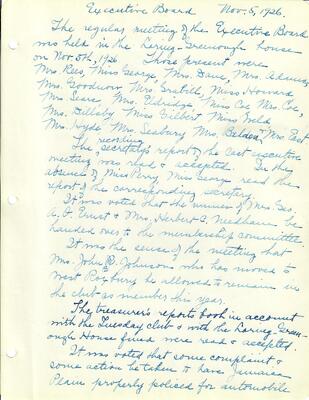 Executive Board Nov. 5, 1926.
The regular meeting of the Executive Board
was held in the Loring-Greenough house
on Nov. 5th, 1926 Those present were
Mrs Rees, Miss George, Mrs. Dane, Mrs. Adams,
Mrs. Goodnow, Mrs. Howard
Mrs Sears, Mrs. Eldridge, Miss Coe, Mrs. Coe,
Mrs. Dillaby Miss Gilbert Miss Weld
Mrs. Hyde Mrs. Seabury Mrs. Belden, Mrs. East
recording
The secretary's report of the last executive
meeting was read & accepted. In the
absence of Miss Perry, Miss George read the
report of the corresponding secretary.
It was voted that the names of Mrs. Geo.
A. O. Ernst & Mrs. Herbert A. Needham be
handed over to the membership committee
It was the sense of the meeting that
Mrs. John R. Johnson who has moved to
West Roxbury be allowed to remain in
the club as member this year.
The treasurer's reports book in account
with the Tuesday club & with the Loring-Green-
ough House fund were read & accepted.
It was voted that some complaint &
some action be taken to have Jamaica
Plain properly policed for automobile